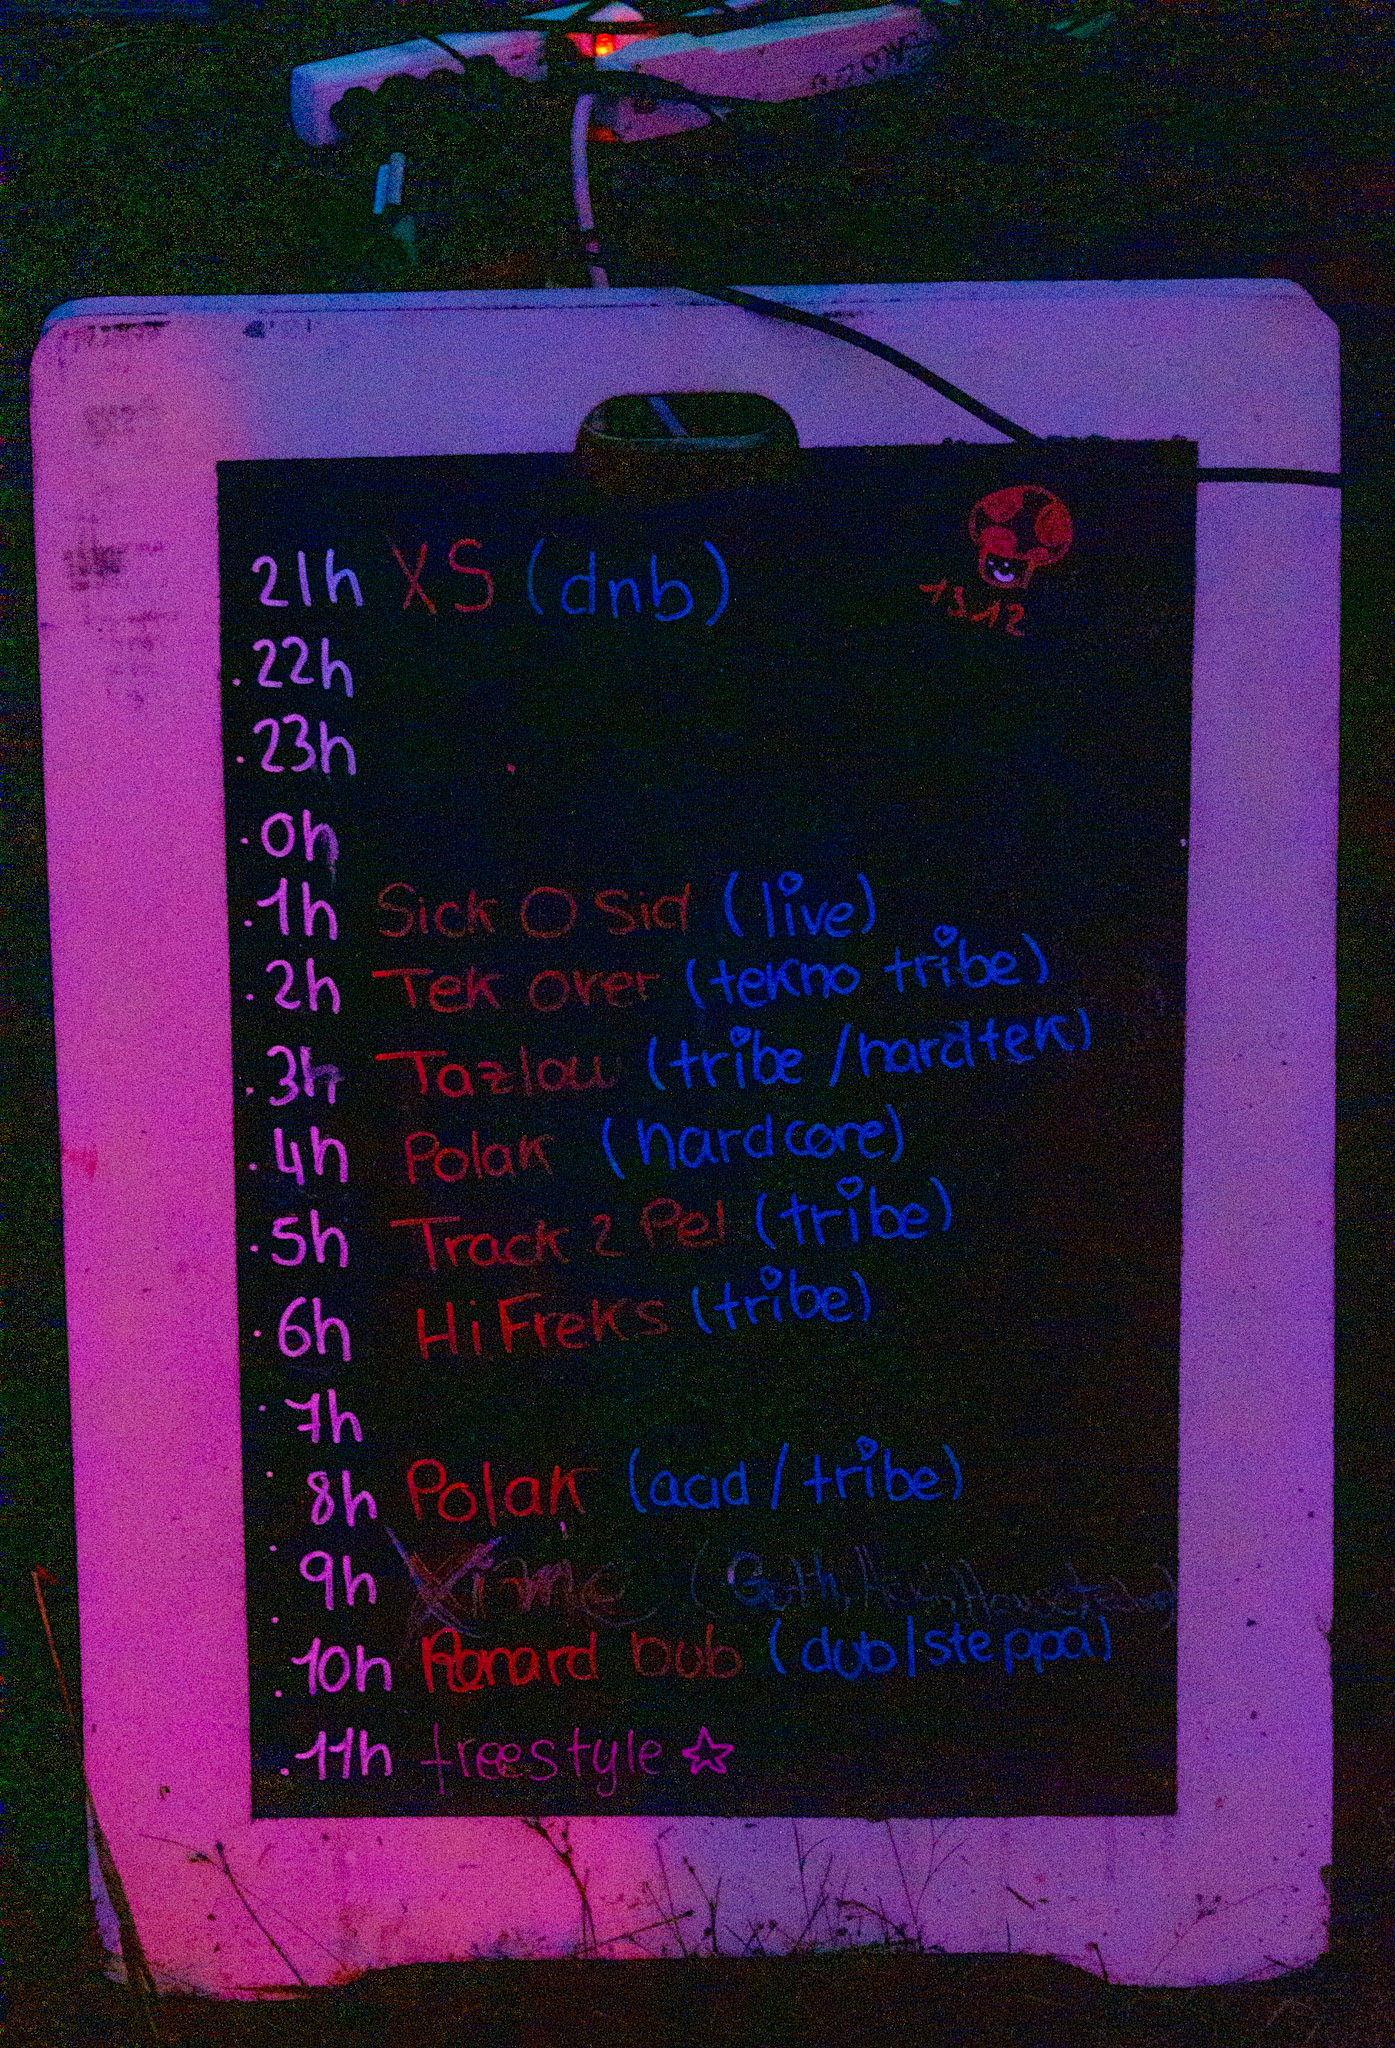 21h XS (dnb)
13.12
.22h
.23h
.0h
.1h Sick O Sid (live)
.2h Tek over (tekno tribe)
.3h Tazlow (tribe / hardtek)
.4h Polak (hardcore)
.5h Track 2 Pel (tribe)
.6h HiFreks (tribe)
.7h
.8h Polak (acid / tribe)
.9h
.10h Renard Dub (dub/steppa)
.11h freestyle ☆